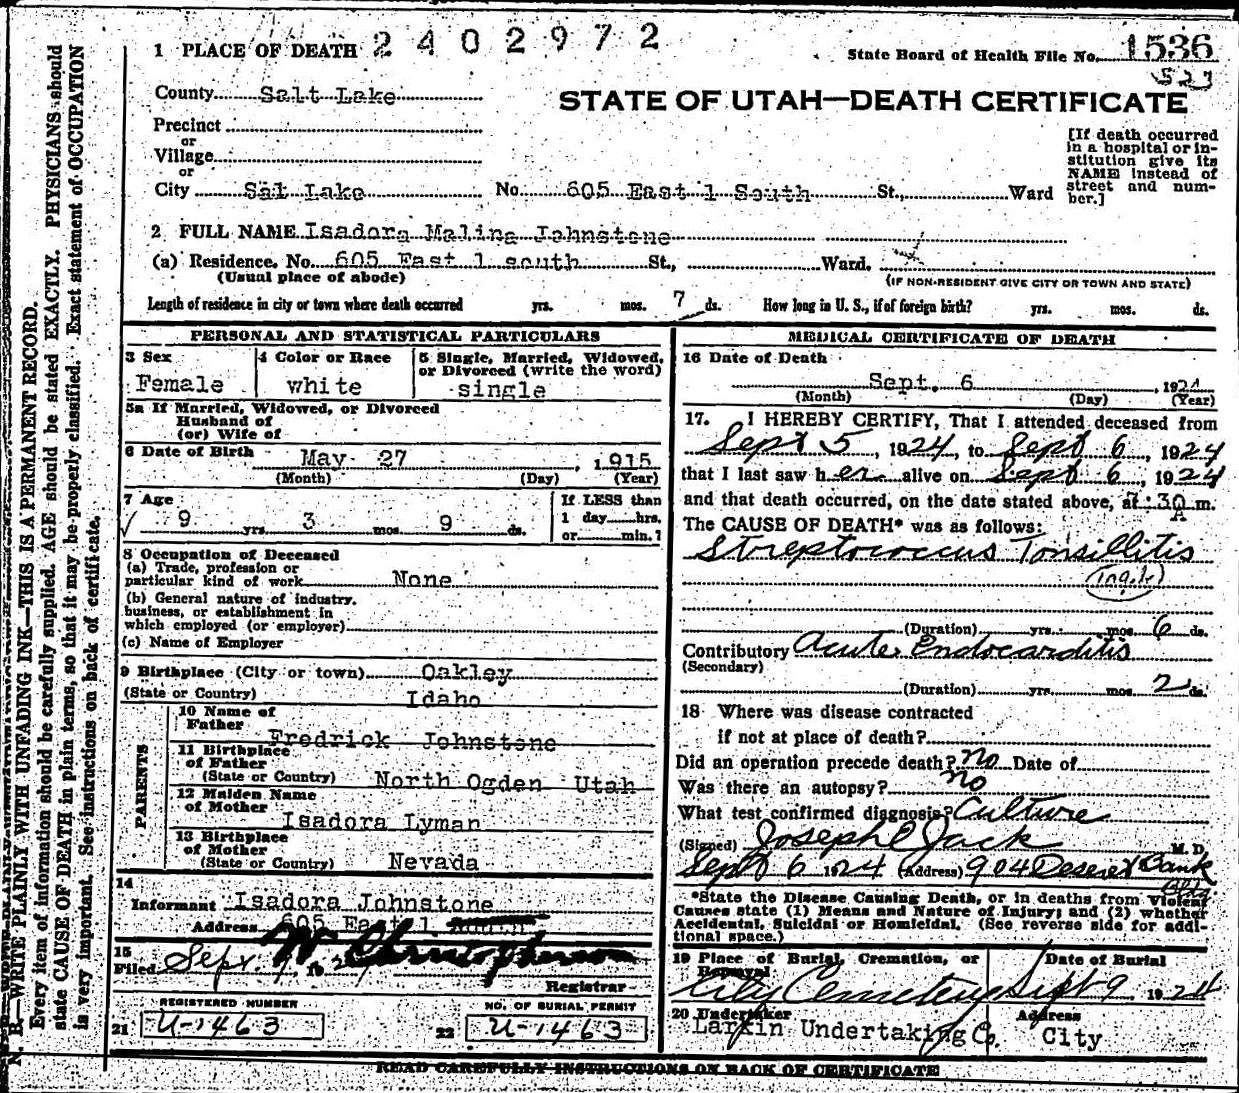 1 PLACE OF DEATH 2402972
State Board of Health File No. 1536
527
County Salt Lake
STATE OF UTAH—DEATH CERTIFICATE
Precinct
or
Village
or
City Sal Lake No. 605 East 1 South St., Ward
[If death occurred
in a hospital or in-
stitution give its
NAME instead of
street and num-
ber.]
2 FULL NAME Isadora Malina Johnstone
(a) Residence. No. 605 East 1 south St., Ward.
(Usual place of abode)
(IF NON-RESIDENT GIVE CITY OR TOWN AND STATE)
Length of residence in city or town where death occurred yrs. mos. 7 ds. How long in U. S., if of foreign birth? yrs. mos. ds.
PERSONAL AND STATISTICAL PARTICULARS
3 Sex
Female
4 Color or Race
white
5 Single, Married, Widowed,
or Divorced (write the word)
single
5a If Married, Widowed, or Divorced
Husband of
(or) Wife of
6 Date of Birth May 27, 1915
(Month) (Day) (Year)
7 Age
9 yrs. 3 mos. 9 ds.
If LESS than
1 day hrs.
or min.?
8 Occupation of Deceased
(a) Trade, profession or
particular kind of work None
(b) General nature of industry,
business, or establishment in
which employed (or employer)
(c) Name of Employer
9 Birthplace (City or town) Oakley
(State or Country) Idaho
PARENTS
10 Name of
Father Fredrick Johnstone
11 Birthplace
of Father
(State or Country) North Ogden Utah
12 Maiden Name
of Mother Isadora Lyman
13 Birthplace
of Mother
(State or Country) Nevada
14
Informant Isadora Johnstone
Address 605 East 1 South
15
Filed Sept. 192
W Christopherson
Registrar
REGISTERED NUMBER
21 U-1463
NO. OF BURIAL PERMIT
22 U-1463
MEDICAL CERTIFICATE OF DEATH
16 Date of Death
Sept. 6, 1924
(Month) (Day) (Year)
17. I HEREBY CERTIFY, That I attended deceased from
Sept 5, 1924, to Sept 6, 1924
that I last saw her alive on Sept 6, 1924
and that death occurred, on the date stated above, at 7:30 A m.
The CAUSE OF DEATH* was as follows:
Streptococcus Tonsillitis
(Duration) yrs. mos. 6 ds.
Contributory Acute Endocarditis
(Secondary)
(Duration) yrs. mos. 2 ds.
18 Where was disease contracted
if not at place of death?
Did an operation precede death? No Date of
Was there an autopsy? no
What test confirmed diagnosis? Culture
(Signed) Joseph E Jack M. D.
Sept 6 1924 (Address) 904 Deseret Bank
Bldg
*State the Disease Causing Death, or in deaths from Violent
Causes state (1) Means and Nature of Injury; and (2) whether
Accidental, Suicidal or Homicidal. (See reverse side for addi-
tional space.)
19 Place of Burial, Cremation, or
Removal
City Cemetery
Date of Burial
Sept 9 1924
20 Undertaker
Larkin Undertaking Co.
Address
City
READ CAREFULLY INSTRUCTIONS ON BACK OF CERTIFICATE
N. B.—WRITE PLAINLY WITH UNFADING INK—THIS IS A PERMANENT RECORD.
Every item of information should be carefully supplied. AGE should be stated EXACTLY. PHYSICIANS should
state CAUSE OF DEATH in plain terms, so that it may be properly classified. Exact statement of OCCUPATION
is very important. See instructions on back of certificate.